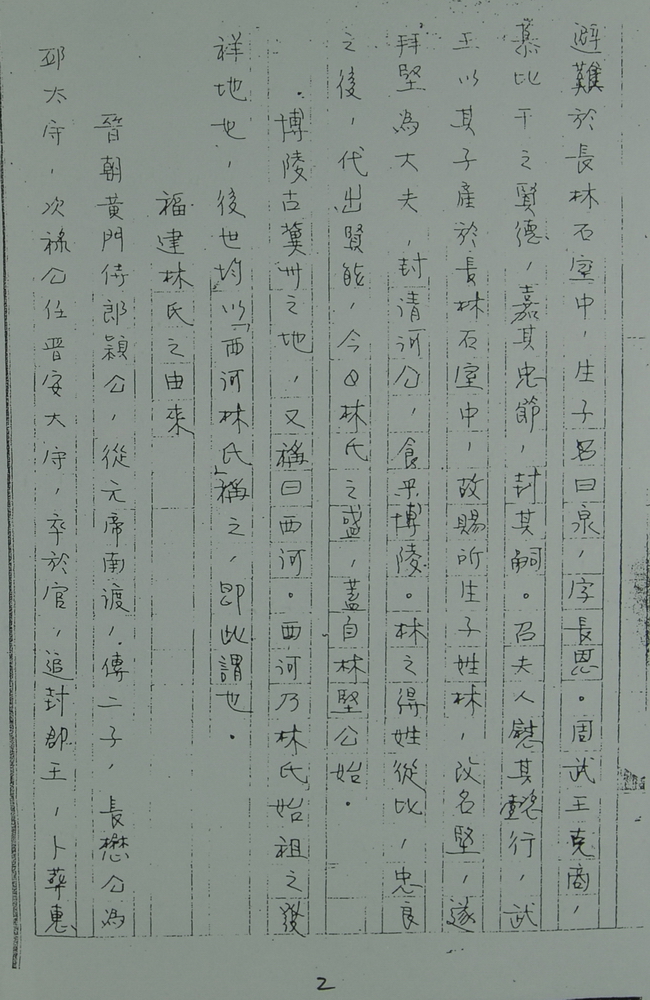 避難於長林石室中，生子名曰泉，字長恩。周武王克商，
慕比干之賢德，嘉其忠節，封其嗣。召夫人慰其懿行，武
王以其子產於長林石室中，故賜所生子姓林，改名堅，遂
拜堅為大夫，封清河公，食采博陵。林之得姓從比，忠良
之後，代出賢能，今日林氏之盛，蓋自林堅公始。
博陵古冀州之地，又稱曰西河。西河乃林氏始祖之發
祥地也，後世均以「西河林氏」稱之，即此謂也。
福建林氏之由來
晉朝黃門侍郎穎公，從元帝南渡，傳二子，長懋公為
邳太守，次祿公任晉安太守，卒於官，追封郡王，卜葬惠
2